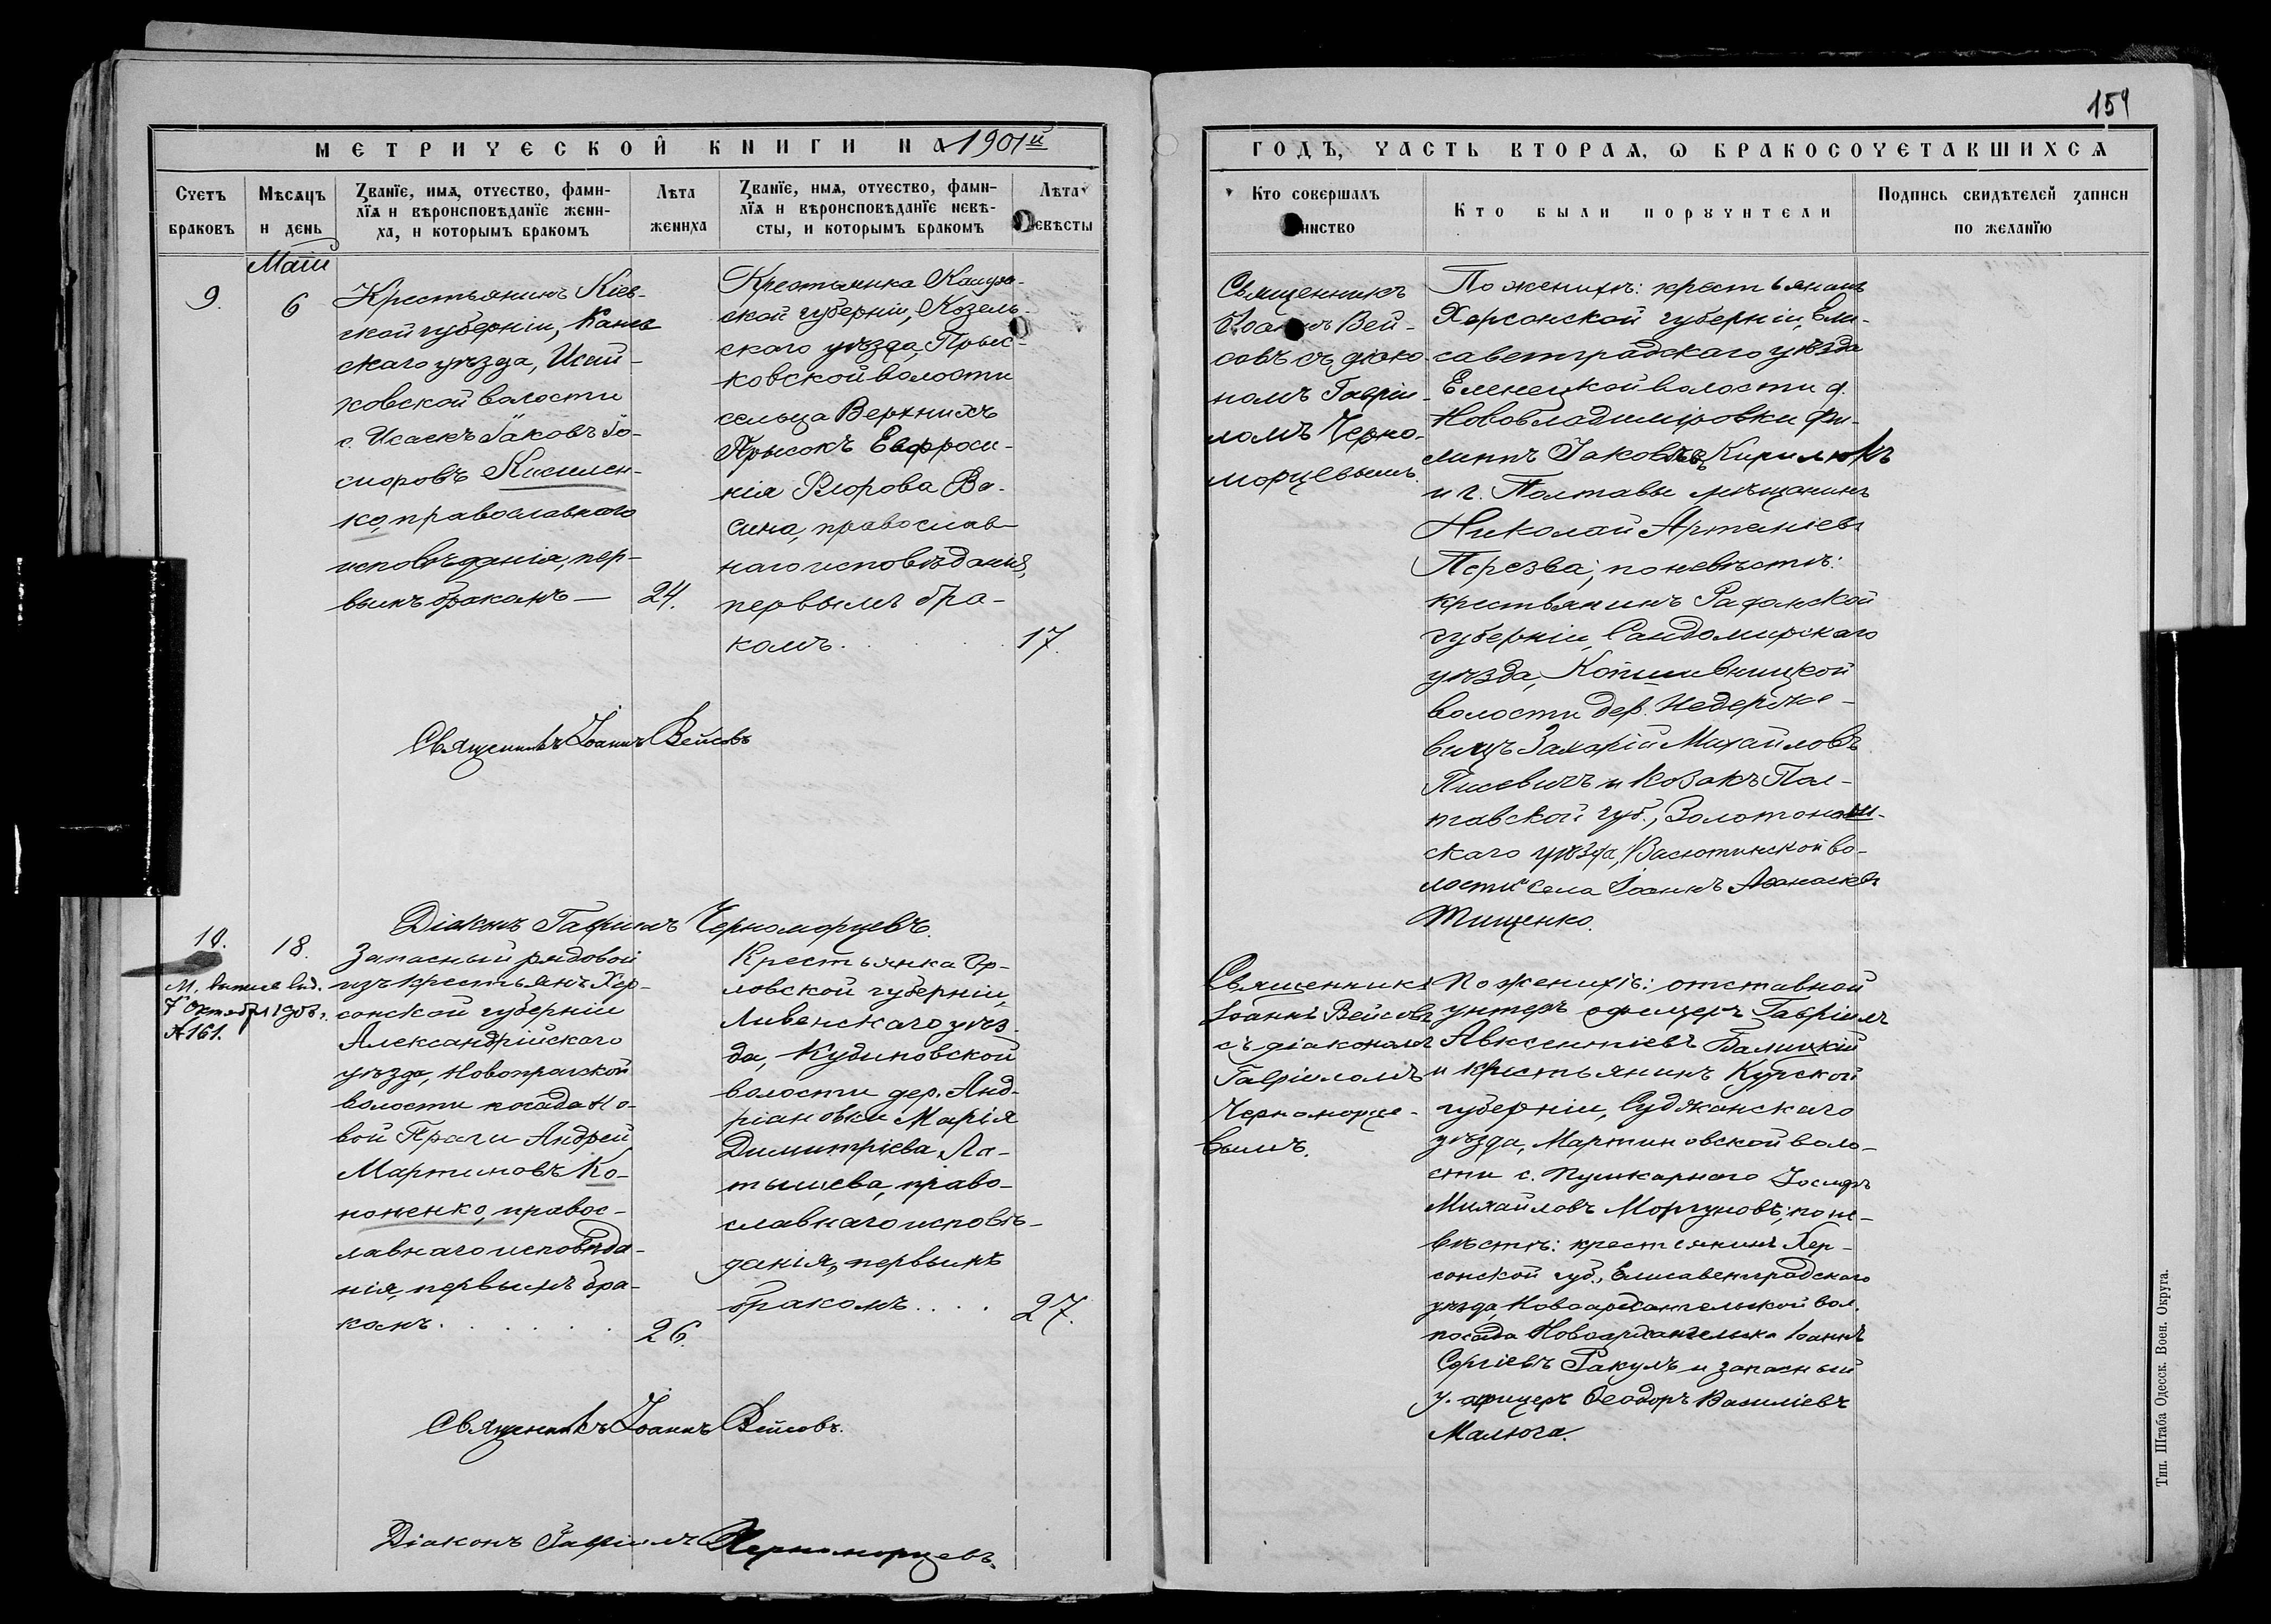 154
МЕТРИЧЕСКОЙ КНИГИ НА 1901й
ГОДЪ, ЧАСТЬ ВТОРАЯ, Ѡ БРАКОСОЧЕТАВШИХСЯ
Счетъ браковъ
Мѣсяцъ и день
Званїе, имя, отчество, фами-
лїя и вѣроисповѣданїе жени-
ха, и которымъ бракомъ
Лѣта жениха
Званїе, имя, отчество, фами-
лїя и вѣроисповѣданїе невѣ-
сты, и которымъ бракомъ
Лѣта невѣсты
Кто совершалъ
таинство
Кто были поручители
Подпись свидѣтелей записи
по желанїю
Май
9.
6
Крестьянинъ Кіев-
ской губерніи, Канев
скаго уѣзда, Исай-
ковской волости
с. Исаекъ Іаковъ Іо-
сиоровъ Кисилен-
ко, православнаго
исповѣданія, пер-
вымъ бракомъ —
24.
Крестьянка Калуж-
ской губерніи, Козель-
скаго уѣзда, Прыс-
ковской волости
сельца Верхнихъ
Прысокъ Евфроси-
нія Флорова Ва-
сина, православ-
наго исповѣданія,
первымъ бра-
комъ.
17.
Священникъ Іоаннъ Вейсовъ
Діаконъ Гавріилъ Черноморцевъ.
Священникъ
Іоаннъ Вей-
совъ съ діако-
номъ Гавріи-
ломъ Черно-
морцевымъ.
По женихѣ: крестьянинъ
Херсонской губерніи, Ели-
саветградскаго уѣзда
Еланецкой волости д.
Нововладиміровки Фи-
липпъ Іаковлевъ Кирилюкъ
и г. Полтавы мѣщанинъ
Николай Артеміевъ
Перезва; по невѣстѣ:
крестьянинъ Радомской
губерніи, Сандомирскаго
уѣзда, Копшивницкой
волости дер.
Захарій Михайловъ
Писевичъ и козакъ Пол-
тавской губ., Золотонош-
скаго уѣзда, Васютинской во-
лости села Іоаннъ Аѳанасіевъ
Тищенко.
10.
18.
М. выпись выд.
7 Октября 1908 г.
№ 161.
Запасный рядовой
изъ крестьянъ Хер-
сонской губерніи
Александрійскаго
уѣзда, Новопражской
волости посада Но-
вой Праги Андрей
Мартиновъ Ко-
ноненко, правос-
лавнаго исповѣда-
нія, первымъ бра-
комъ.
26.
Крестьянка Ор-
ловской губерніи,
Ливенскаго уѣз-
да, Кудиновской
волости дер. Анд-
ріановки Марія
Димитріева Ла-
тышева, право-
славнаго исповѣ-
данія, первымъ
бракомъ....
27.
Священникъ Іоаннъ Вейсовъ.
Діаконъ Гавріилъ Черноморцевъ.
Священникъ
Іоаннъ Вейсовъ
съ діакономъ
Гавріиломъ
Черноморце-
вымъ.
По женихѣ: отставной
унтеръ офицеръ Гавріилъ
Авксентіевъ Балицкій
и крестьянинъ Курской
губерніи, Суджанскаго
уѣзда, Мартиновской воло-
сти с. Пушкарнаго Іосифъ
Михайловъ Моргуновъ; по не-
вѣстѣ: крестьянинъ Хер-
сонской губ., Елисаветградскаго
уѣзда, Новоархангельской вол.
посада Новоархангельска Іоаннъ
Сергіевъ Ракулъ и запасный
у. офицеръ Ѳеодоръ Василіевъ
Малюга.
Тип. Штаба Одесск. Воен. Округа.